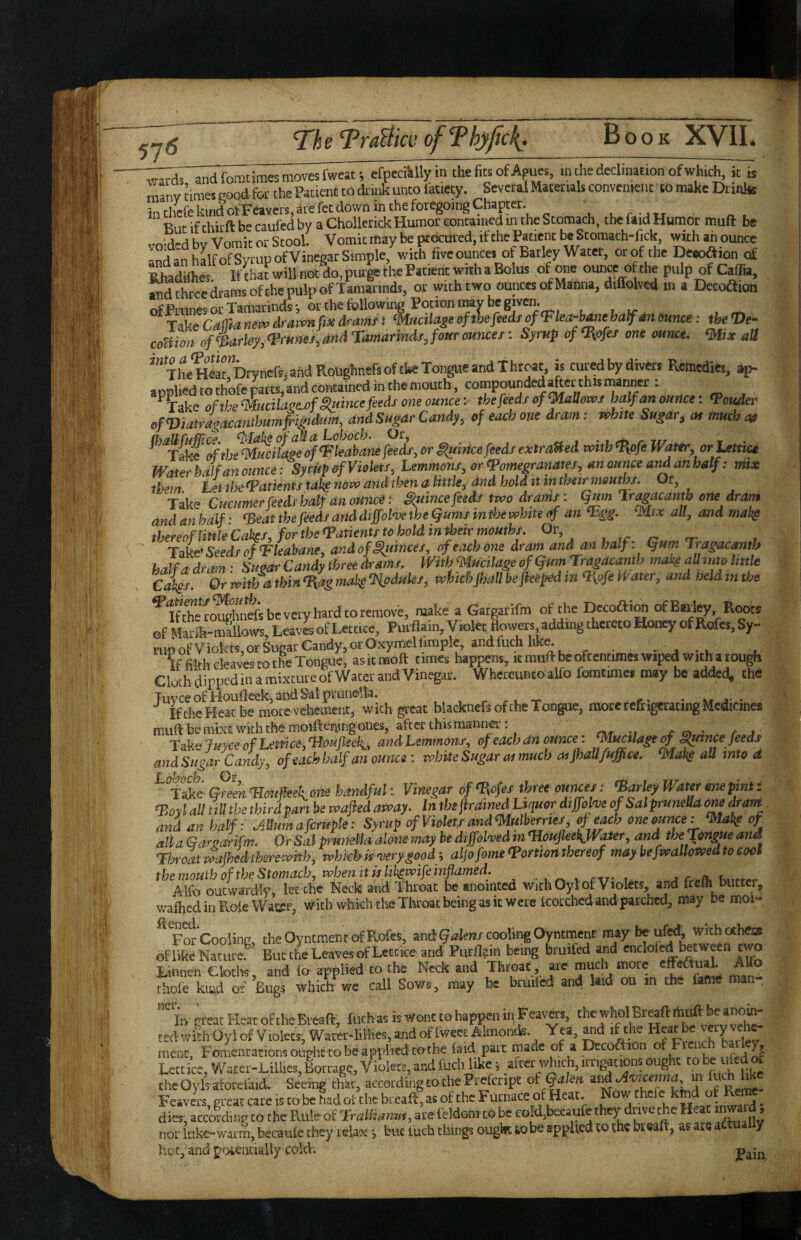 576 The Practice of Physick. Book XVII.
wards, and somtimes moves sweat; especially in the fits of Agues, in the declination of which, it is
many times good for the Patient to drink unto satiety. Several Materials convenient to make Drinks
in these kind of Feavers, are set down in the foregoing Chapter.
But if thirst be caused by a Chollerick Humor contained in the Stomach, the said Humor must be
voided by Vomit or Stool. Vomit may be procured, if the Patient be Stomach-sick, with an ounce
and an half of Syrup of Vinegar Simple, with five ounces of Barley Water, or of the Decoction of
Rhadishes. If that will not do, purge the Patient with a Bolus of one ounce of the pulp of Cassia,
and three drams of the pulp of Tamarinds, or with two ounces of Manna, dissolved in a Decoction
of Prunes or Tamarinds; or the following Potion may be given.
Take Cassia new drawn six drams: Mucilage of the seeds of Flea-bane half an ounce: the De-
coction of Barley, Prunes, and Tamarinds, four ounces: Syrup of Roses one ounce. Mix all
into a Potion.
The Heat, Dryness, and Roughness of the Tongue and Throat, is cured by divers Remedies, ap-
applied to those parts, and contained in the mouth, compounded after this manner:
Take of the Mucilage of Quince seeds one ounce: the seeds of Mallows half an ounce: Pouder
of Diatragacanthum frigidum, and Sugar Candy, of each one dram: white Sugar, as much as
shall suffice. Make of all a Lohoch. Or,
Take of the Mucilage of Fleabane seeds, or Quince seeds extracted with Rose Water, or Lettice
Water half an ounce: Syrup of Violets, Lemmons, or Pomegranates, an ounce and an half: mix
them. Let the Patients take now and then a little, and hold it in their mouths. Or,
Take Cucumer seeds half an ounce: Quince seeds two drams: Gum Tragacanth one dram
and an half: Beat the seeds and dissolve the Gums in the white of an Egg. Mix all, and make
thereof little Cakes, for the Patients to hold in their mouths. Or,
Take Seeds of Fleabane, and of Quinces, of each one dram and an half: Gum Tragacanth
half a dram: Sugar Candy three drams. With Mucilage of Gum Tragacanth make all into little
Cakes. Or with a thin Rag make Nodules, which shall be steeped in Rose Water, and held in the
Patients Mouth.
If the roughness be very hard to remove, make a Gargarism of the Decoction of Barley, Roots
of Marsh-mallows, Leaves of Lettice, Purslain, Violet flowers, adding thereto Honey of Roses, Sy-
rup of Violets, or Sugar Candy, or Oxymel simple, and such like.
If filth cleaves to the Tongue, as it most times happens, it must be oftentimes wiped with a rough
Cloth dipped in a mixture of Water and Vinegar. Whereunto also somtimes may be added, the
Juyce of Housleek, and Sal prunella.
If the Heat be more vehement, with great blackness of the Tongue, more refrigerating Medicines
must be mixt with the moistening ones, after this manner:
Take Juyce of Lettice, Housleek, and Lemmons, of each an ounce: Mucilage of Quince seeds
and Sugar Candy, of each half an ounce: white Sugar as much as shall suffice. Make all into a
Lohoch. Or,
Take Green Housleek one handful: Vinegar of Roses three ounces: Barley Water one pint:
Boyl all till the third part be wasted away. In the strained Liquor dissolve of Sal prunella one dram
and an half: Allum a scruple: Syrup of Violets and Mulberries, of each one ounce: Make of
all a Gargarism. Or Sal prunella alone may be dissolved in Housleek Water, and the Tongue and
Throat washed therewith, which is very good; also some Portion thereof may be swallowed to cool
the mouth of the Stomach, when it is likewise inflamed.
Also outwardly, let the Neck and Throat be anointed with Oyl of Violets, and fresh butter,
washed in Rose Water, with which the Throat being as it were scorched and parched, may be moi-
stened.
For Cooling, the Oyntment of Roses, and Galens cooling Oyntment may be used, with others
of like Nature. But the Leaves of Lettice and Purslain being bruised and enclosed between two
Linnen Cloths, and so applied to the Neck and Throat, are much more effectual. Also
those kind of Bugs which we call Sows, may be bruised and laid on in the same man-
ner.
In great Heat of the Breast, such as is wont to happen in Feavers, the whol Breast must be anoin-
ted with Oyl of Violets, Water-lillies, and of sweet Almonds. Yea, and if the Heat be very vehe-
ment, Fomentations ought to be applied to the said part made of a Decoction of French barley,
Lettice, Water-Lillies, Borrage, Violets, and such like; after which, irrigations ought to be used of
the Oyls aforesaid. Seeing that, according to the Prescript of Galen and Avicenna, in such like
Feavers, great care is to be had of the breast, as of the Furnace of Heat. Now these kind of Reme-
dies, according to the Rule of Trallianus, are seldom to be cold, because they drive the Heat inward;
nor luke-warm, because they relax; but such things ought to be applied to the breast, as are actually
hot, and potentially cold.
Pain